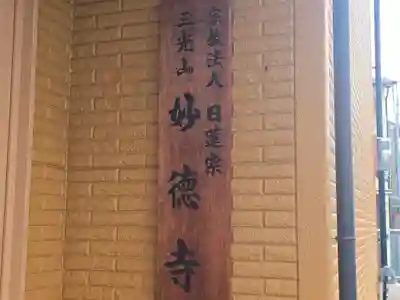 宗教法人日蓮宗
三光山
妙德寺